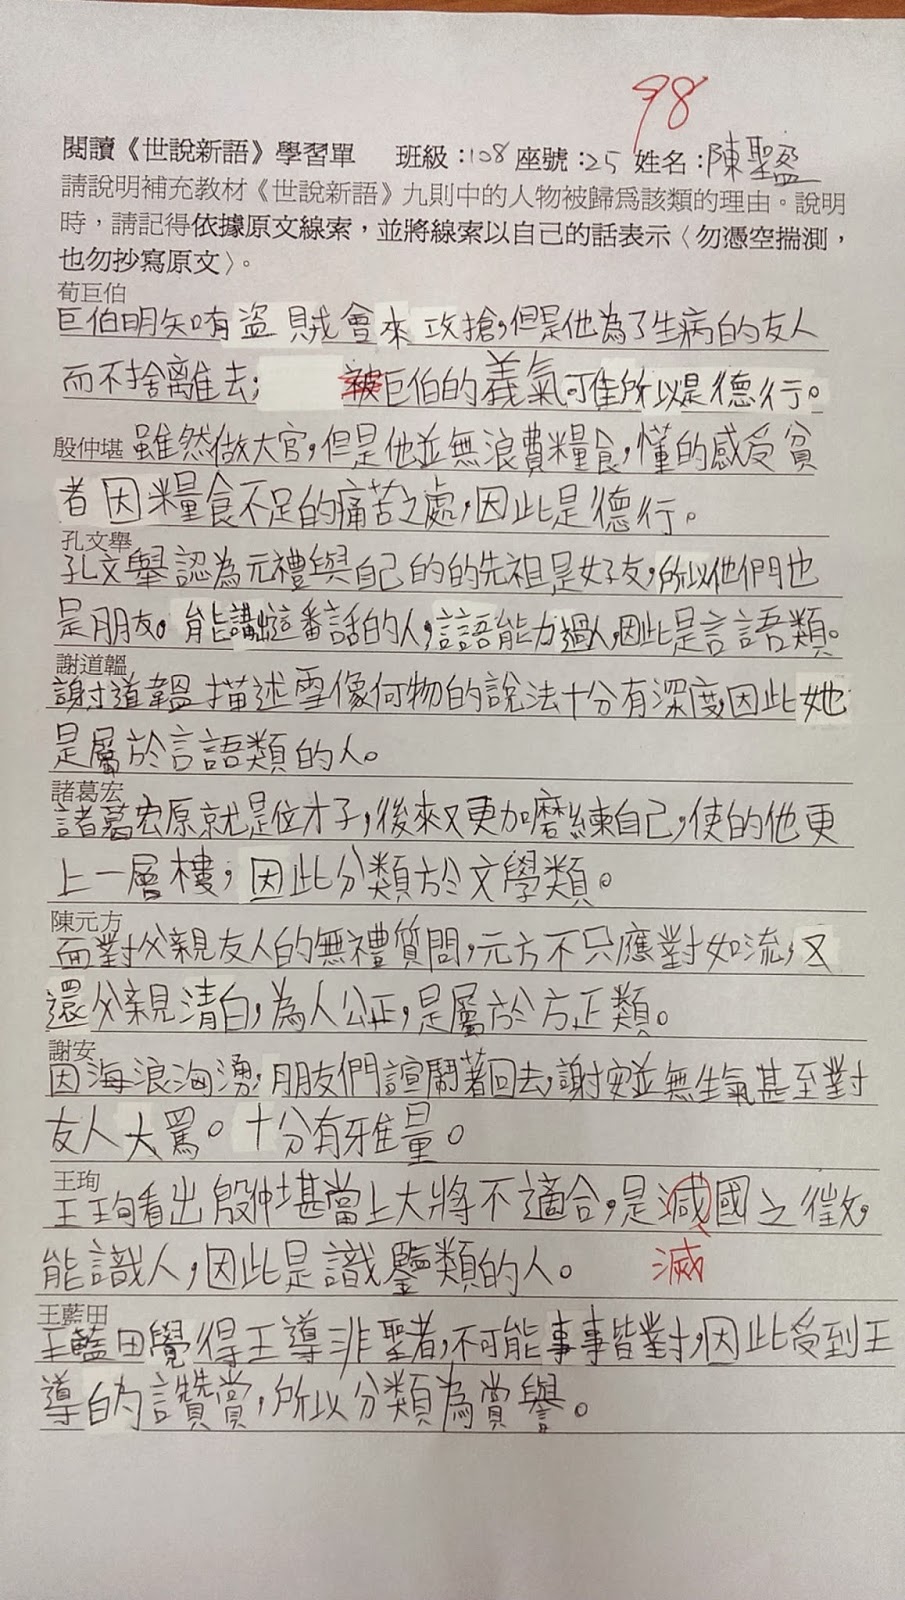 98
閱讀《世說新語》學習單 班級:108 座號:25 姓名:陳聖盈
請說明補充教材《世說新語》九則中的人物被歸為該類的理由。說明
時,請記得依據原文線索,並將線索以自己的話表示〈勿憑空揣測,
也勿抄寫原文〉。
荀巨伯
巨伯明知有盜賊會來攻搶,但是他為了生病的友人
而不捨離去; 被巨伯的義氣可佳所以是德行。
殷仲堪 雖然做大官,但是他並無浪費糧食,懂的感受貧
者因糧食不足的痛苦之處,因此是德行。
孔文舉
孔文舉認為元禮與自己的的先祖是好友,所以他們也
是朋友。能講出這番話的人,言語能力過人,因此是言語類。
謝道韞
謝道韞描述雪像何物的說法十分有深度,因此她
是屬於言語類的人。
諸葛宏
諸葛宏原就是位才子,後來又更加磨練自己,使的他更
上一層樓,因此分類於文學類。
陳元方
面對父親友人的無禮質問,元方不只應對如流,又
還父親清白,為人公正,是屬於方正類。
謝安
因海浪洶湧,朋友們諠鬧著回去,謝安並無生氣甚至對
友人大罵。十分有雅量。
王珣
王珣看出殷仲堪當上大將不適合,是減國之徵,
能識人,因此是識鑒類的人。 滅
王藍田
王藍田覺得王導非聖者,不可能事事皆對,因此受到王
導的讚賞,所以分類為賞譽。